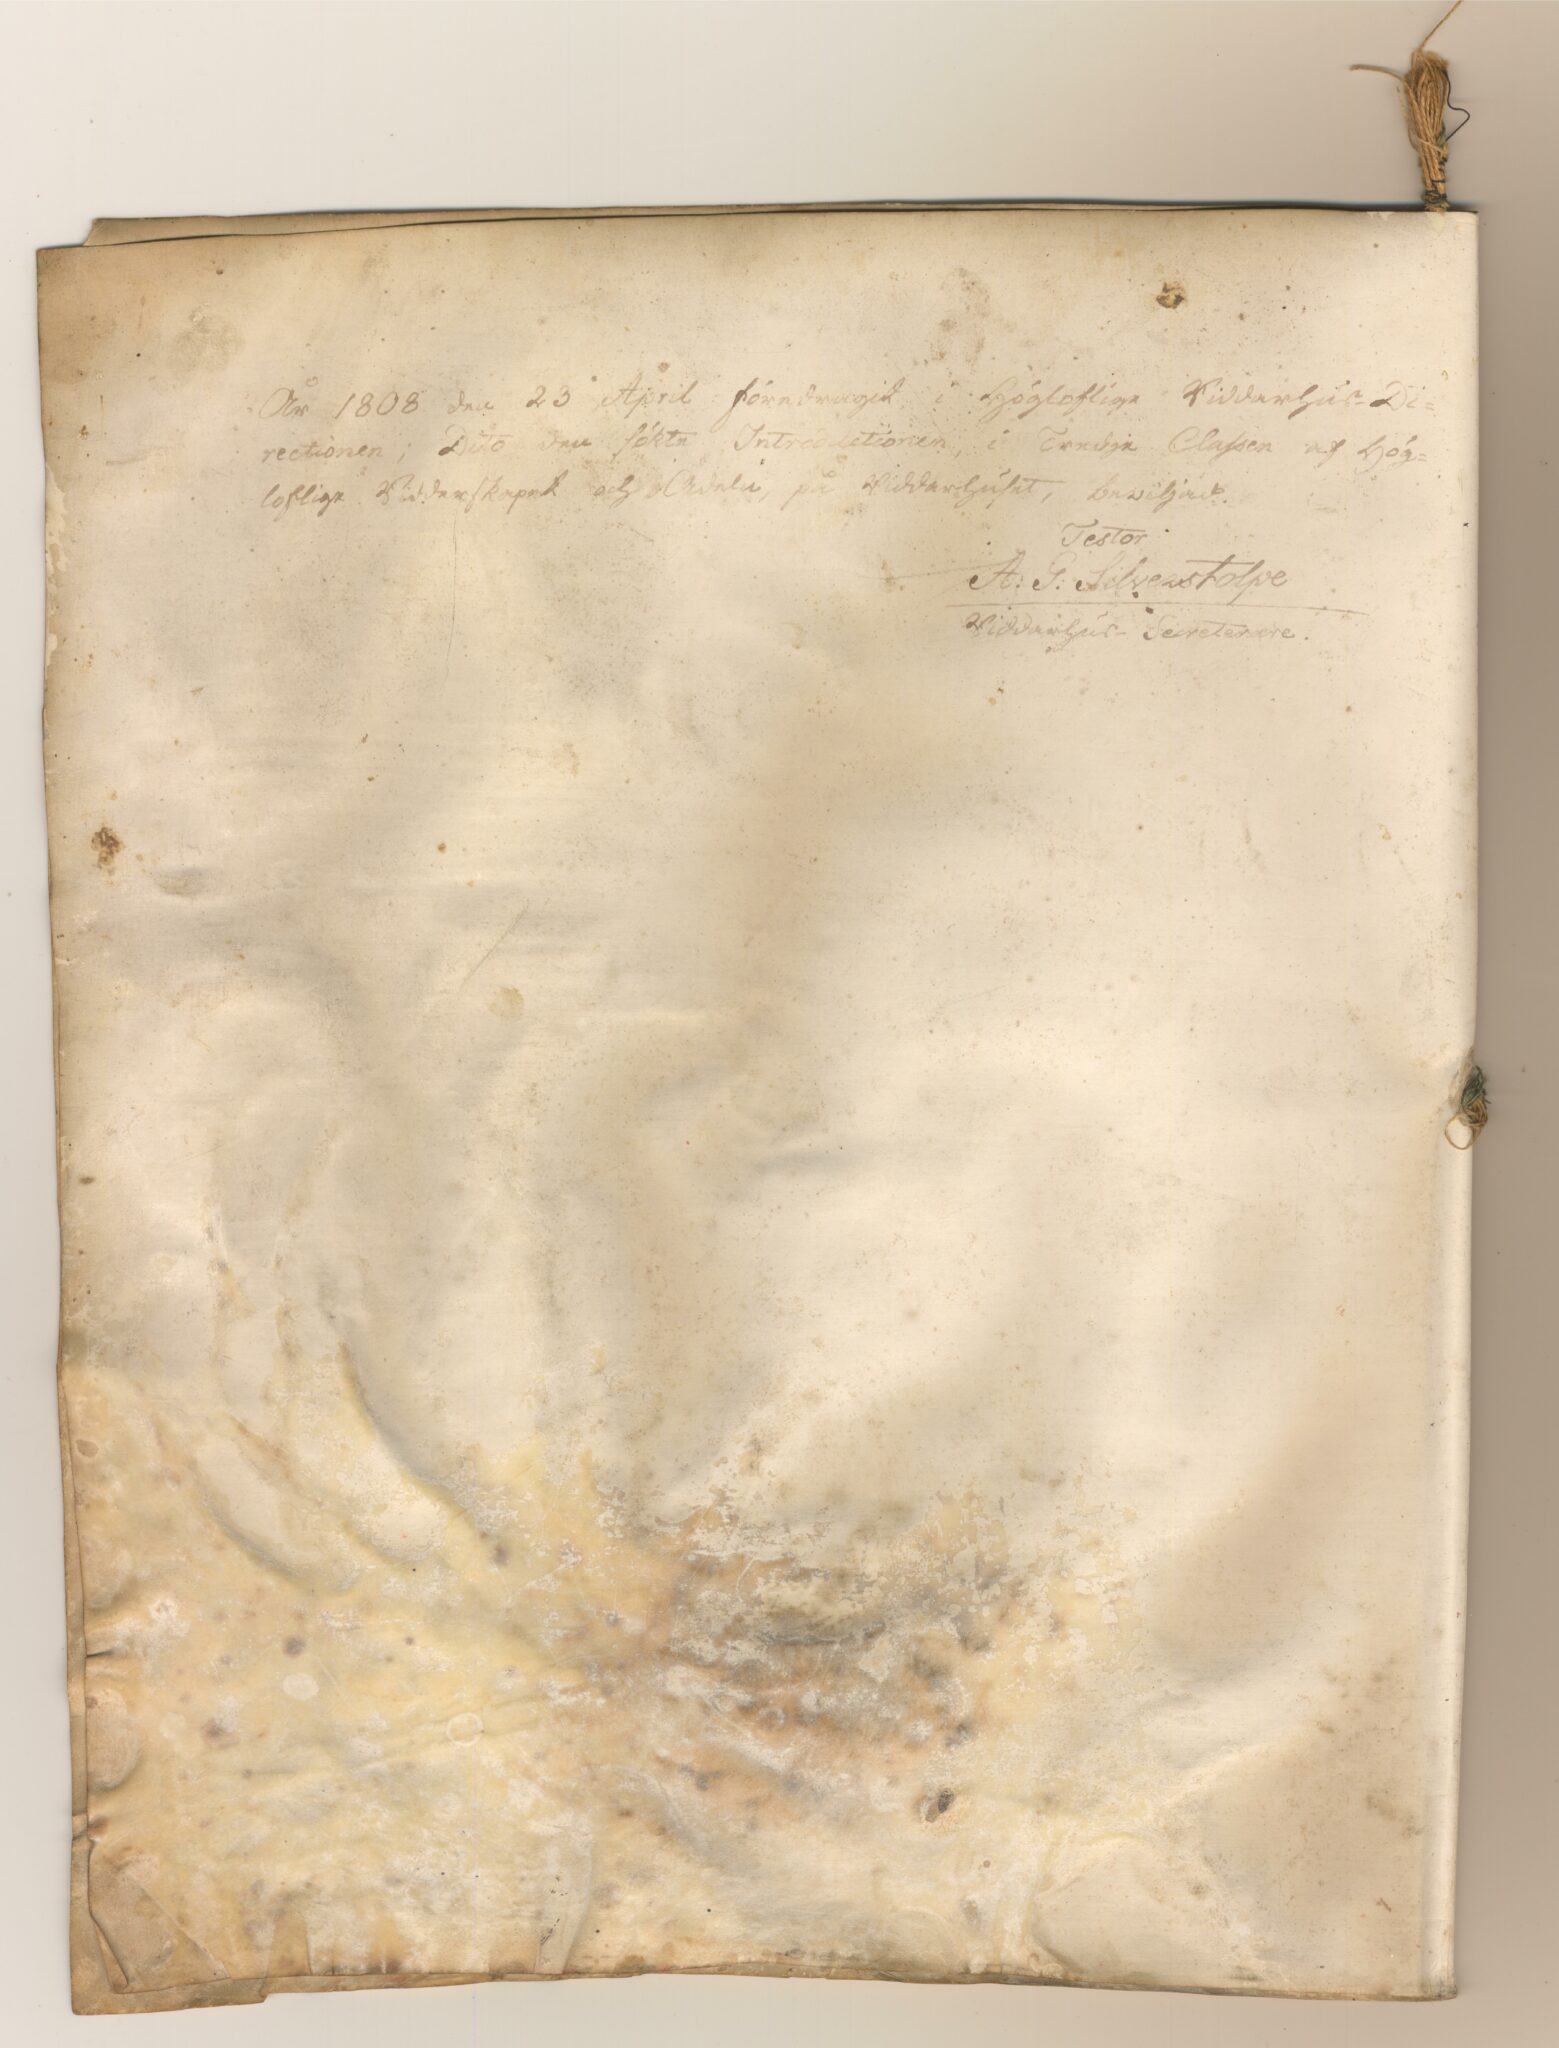 År 1808 den 23 April föredragit i Högloflige Riddarhus-Di=
rectionen; Dito den sökte Introductionen, i Tredje Classen af Hög=
loflige Ridderskapet och Adeln, på Riddarhuset, beviljad.
Testor
A: G: Silverstolpe
Riddarhus- Secreterare.